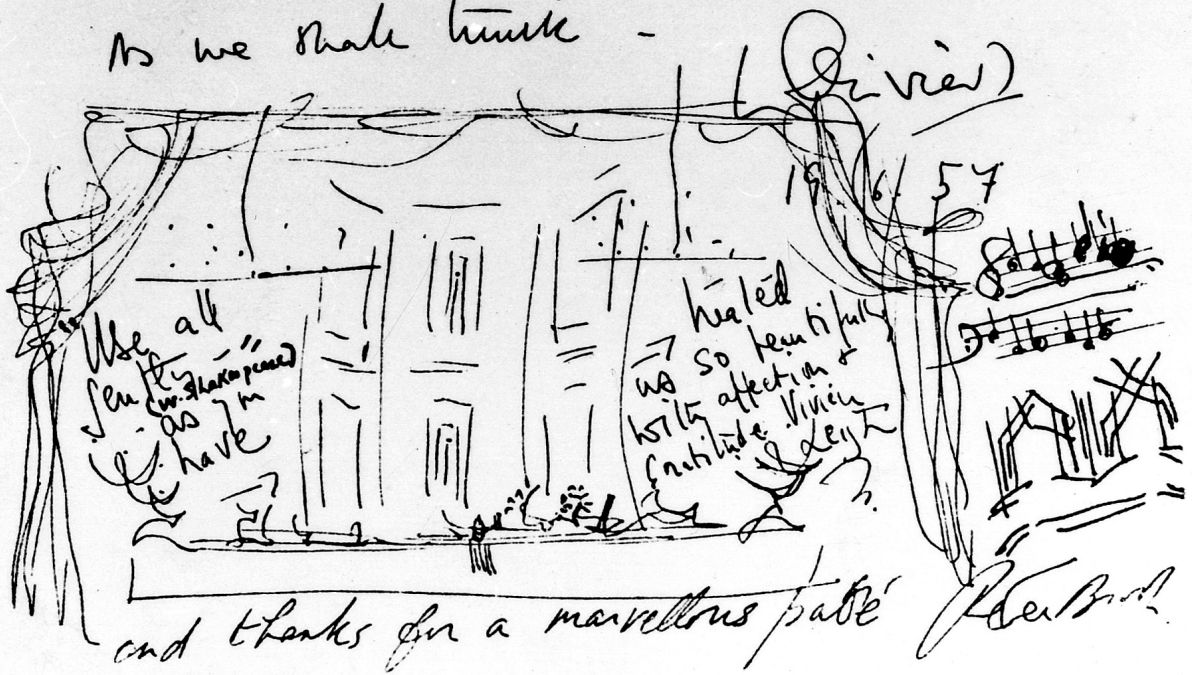 As we shall think -
(Olivier)
19 6 57
Use all
gently"
(W. Shakespeare)
as you
have
us so beautifully
with affection &
gratitude Vivien
Leigh
and thanks for a marvellous pâté
Peter Brook